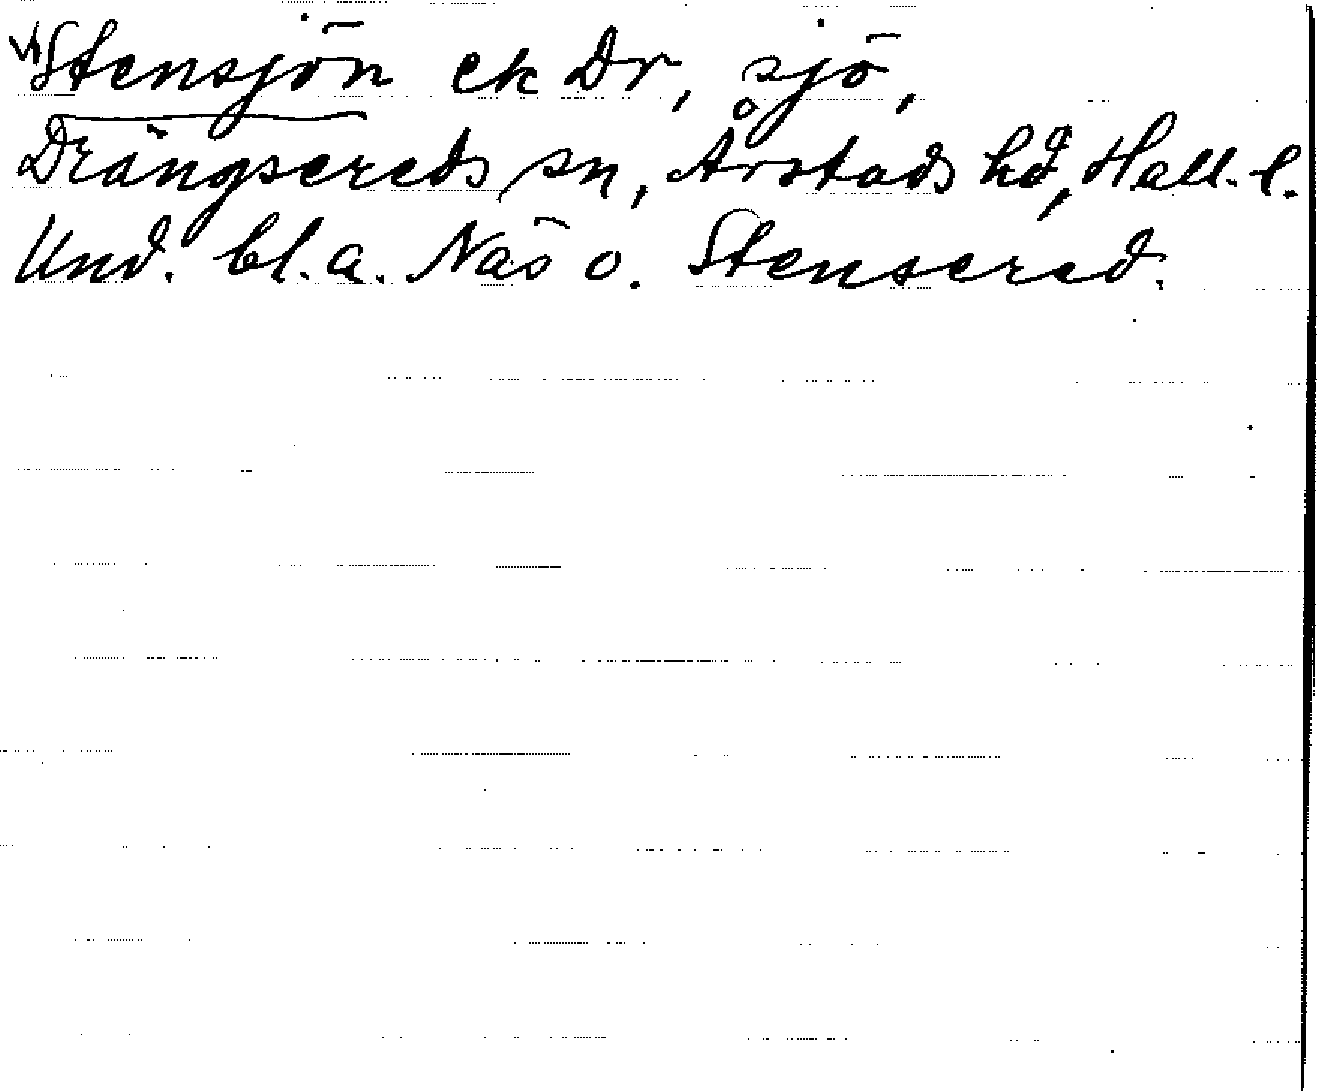 Stensjön ek Dr, sjö,
Drängsereds sn, Årstads hd, Hall. l.
Und. bl. a. Näs o. Stensered.